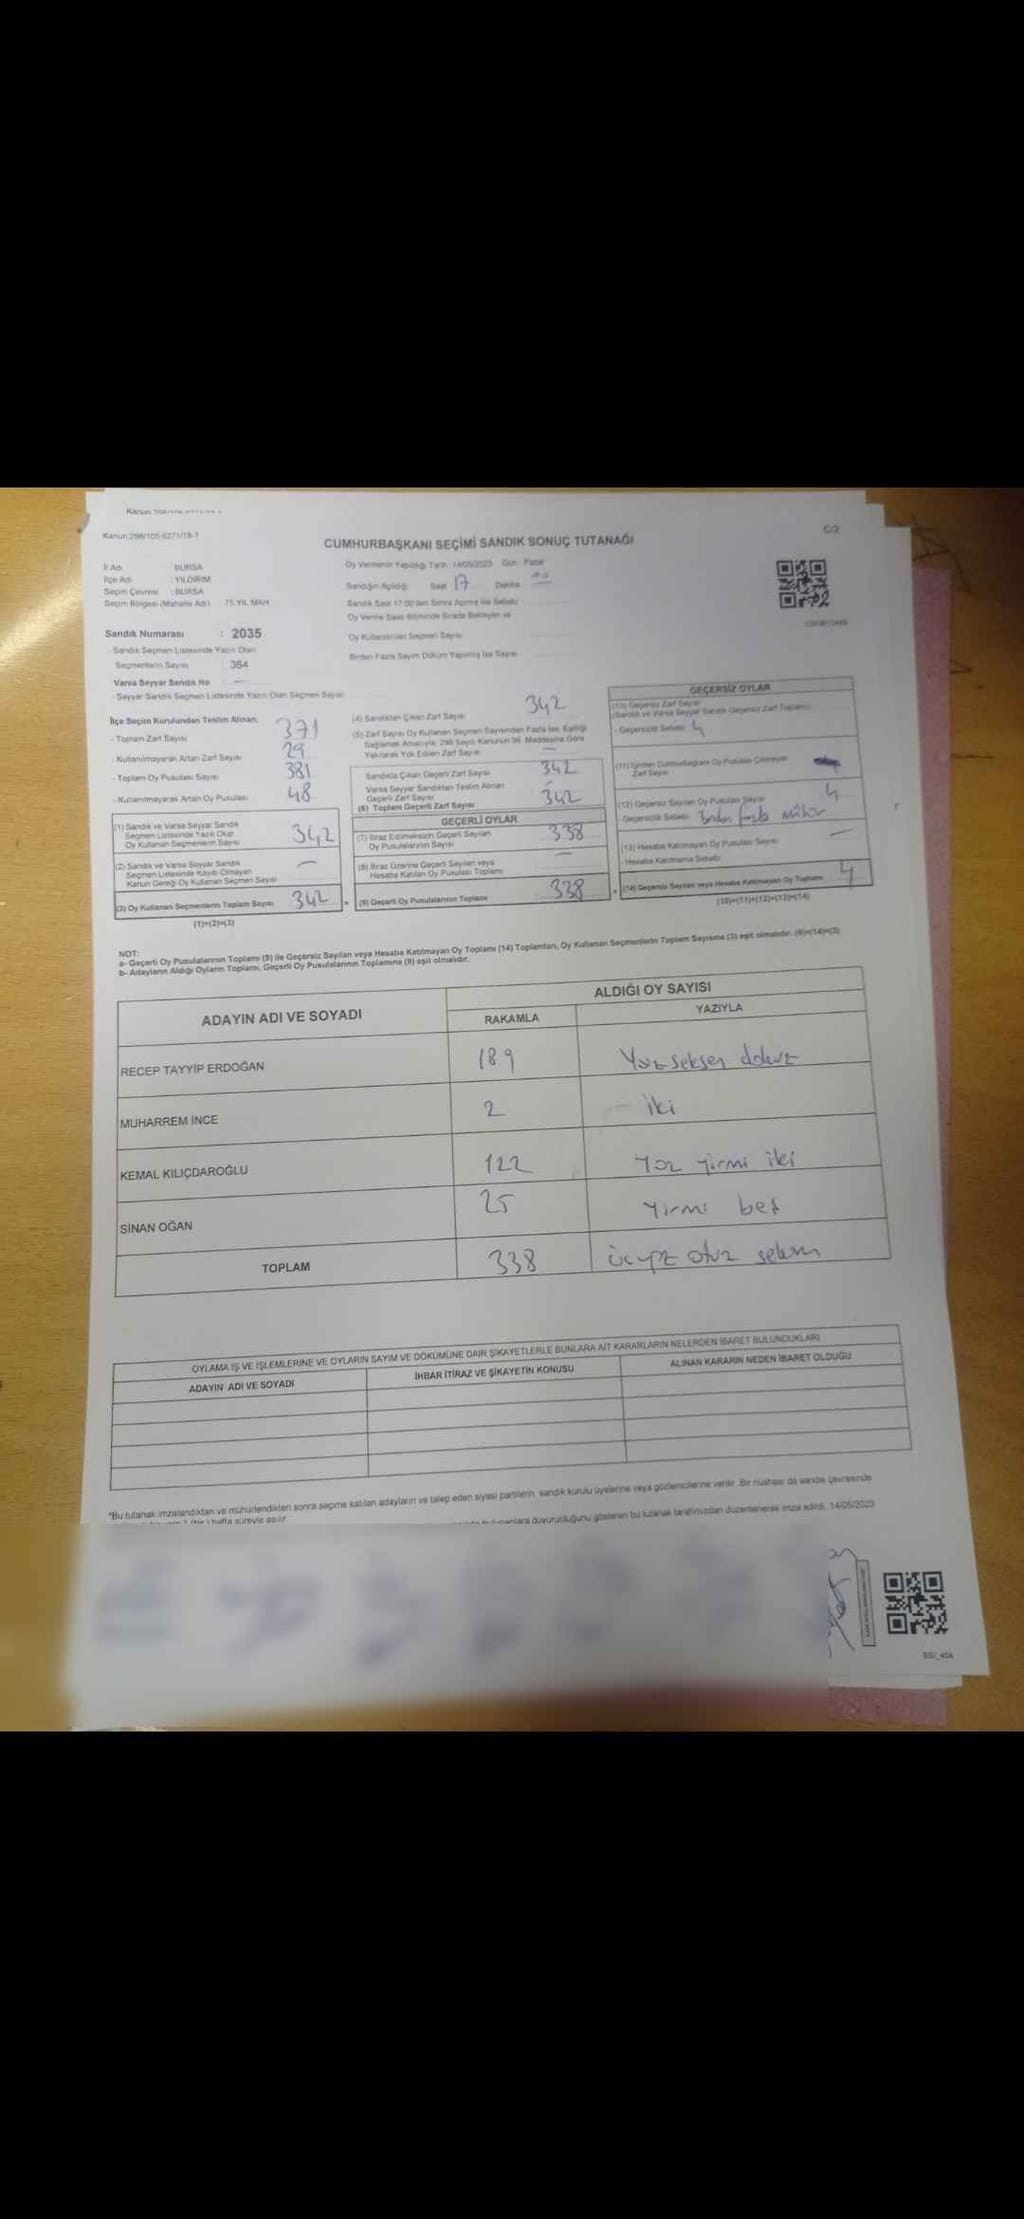 Kanun:298/105-6271/18-1
C/2
CUMHURBAŞKANI SEÇİMİ SANDIK SONUÇ TUTANAĞI
İl Adı : BURSA
İlçe Adı : YILDIRIM
Seçim Çevresi : BURSA
Seçim Bölgesi (Mahalle Adı) : 75.YIL MAH.
Oy Vermenin Yapıldığı Tarih: 14/05/2023 Gün : Pazar
Sandığın Açıldığı Saat 17 Dakika
Sandık Saat 17:00'den Sonra Açılmış İse Sebebi
Oy Verme Saati Bitiminde Sırada Bekleyen ve
Oy Kullandırılan Seçmen Sayısı
Birden Fazla Sayım Döküm Yapılmış İse Sayısı
Sandık Numarası : 2035
- Sandık Seçmen Listesinde Yazılı Olan
Seçmenlerin Sayısı : 364
Varsa Seyyar Sandık No : —
- Seyyar Sandık Seçmen Listesinde Yazılı Olan Seçmen Sayısı:
İlçe Seçim Kurulundan Teslim Alınan;
- Toplam Zarf Sayısı 371
- Kullanılmayarak Artan Zarf Sayısı 29
- Toplam Oy Pusulası Sayısı 381
- Kullanılmayarak Artan Oy Pusulası 48
(1) Sandık ve Varsa Seyyar Sandık
Seçmen Listesinde Yazılı Olup
Oy Kullanan Seçmenlerin Sayısı 342
(2) Sandık ve Varsa Seyyar Sandık
Seçmen Listesinde Kayıtlı Olmayan
Kanun Gereği Oy Kullanan Seçmen Sayısı —
(3) Oy Kullanan Seçmenlerin Toplam Sayısı 342
(1)+(2)=(3)
(4) Sandıktan Çıkan Zarf Sayısı 342
(5) Zarf Sayısı Oy Kullanan Seçmen Sayısından Fazla İse, Eşitliği
Sağlamak Amacıyla, 298 Sayılı Kanunun 98. Maddesine Göre
Yakılarak Yok Edilen Zarf Sayısı —
Sandıkta Çıkan Geçerli Zarf Sayısı 342
Varsa Seyyar Sandıktan Teslim Alınan
Geçerli Zarf Sayısı -
(6) Toplam Geçerli Zarf Sayısı 342
GEÇERLİ OYLAR
(7) İtiraz Edilmeksizin Geçerli Sayılan
Oy Pusulalarının Sayısı 338
(8) İtiraz Üzerine Geçerli Sayılan veya
Hesaba Katılan Oy Pusulası Toplamı —
(9) Geçerli Oy Pusulalarının Toplamı 338
GEÇERSİZ OYLAR
(10) Geçersiz Zarf Sayısı
(Sandık ve Varsa Seyyar Sandık Geçersiz Zarf Toplamı)
- Geçersizlik Sebebi: 4
(11) İçinden Cumhurbaşkanı Oy Pusulası Çıkmayan
Zarf Sayısı
(12) Geçersiz Sayılan Oy Pusulası Sayısı 4
- Geçersizlik Sebebi: Birden fazla mühür
(13) Hesaba Katılmayan Oy Pusulası Sayısı —
- Hesaba Katılmama Sebebi:
(14) Geçersiz Sayılan veya Hesaba Katılmayan Oy Toplamı 4
(10)+(11)+(12)+(13)=(14)
NOT:
a- Geçerli Oy Pusulalarının Toplamı (9) ile Geçersiz Sayılan veya Hesaba Katılmayan Oy Toplamı (14) Toplamları, Oy Kullanan Seçmenlerin Toplam Sayısına (3) eşit olmalıdır. (9)+(14)=(3)
b- Adayların Aldığı Oyların Toplamı, Geçerli Oy Pusulalarının Toplamına (9) eşit olmalıdır.
ADAYIN ADI VE SOYADI
ALDIĞI OY SAYISI
RAKAMLA YAZIYLA
RECEP TAYYİP ERDOĞAN 189 Yüz seksen dokuz
MUHARREM İNCE 2 iki
KEMAL KILIÇDAROĞLU 122 Yüz yirmi iki
SİNAN OĞAN 25 Yirmi beş
TOPLAM 338 üçyüz otuz sekiz
OYLAMA İŞ VE İŞLEMLERİNE VE OYLARIN SAYIM VE DÖKÜMÜNE DAİR ŞİKAYETLERLE BUNLARA AİT KARARLARIN NELERDEN İBARET BULUNDUKLARI
ADAYIN ADI VE SOYADI İHBAR İTİRAZ VE ŞİKAYETİN KONUSU ALINAN KARARIN NEDEN İBARET OLDUĞU
*Bu tutanak imzalandıktan ve mühürlendikten sonra seçime katılan adayların ve talep eden siyasi partilerin, sandık kurulu üyelerine veya gözlemcilerine verilir. Bir nüshası da sandık çevresinde
hafta süreyle asılır. duyurulduğunu gösteren bu tutanak tarafımızdan düzenlenerek imza edildi. 14/05/2023
SSI_404